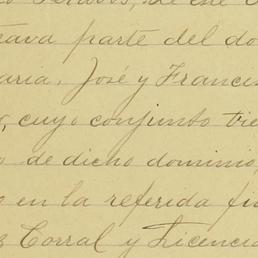 tava parte del do
aria, José y Francis
cuyo conjunto tie
de dicho dominio
en la referida fi
Corral y Licencia